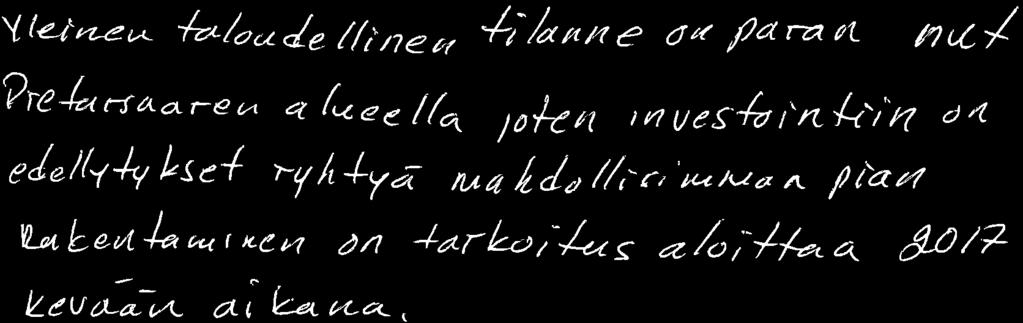 Yleinen taloudellinen tilanne on paran nut
Pietarsaaren alueella joten investointiin on
edellytykset ryhtyä mahdollisimman pian
Rakentaminen on tarkoitus aloittaa 2017
kevään aikana.